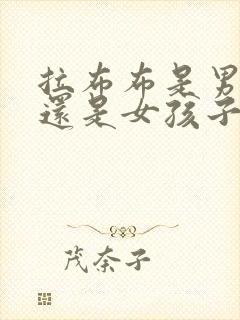 拉布布是男
還是女孩子
茂奈子